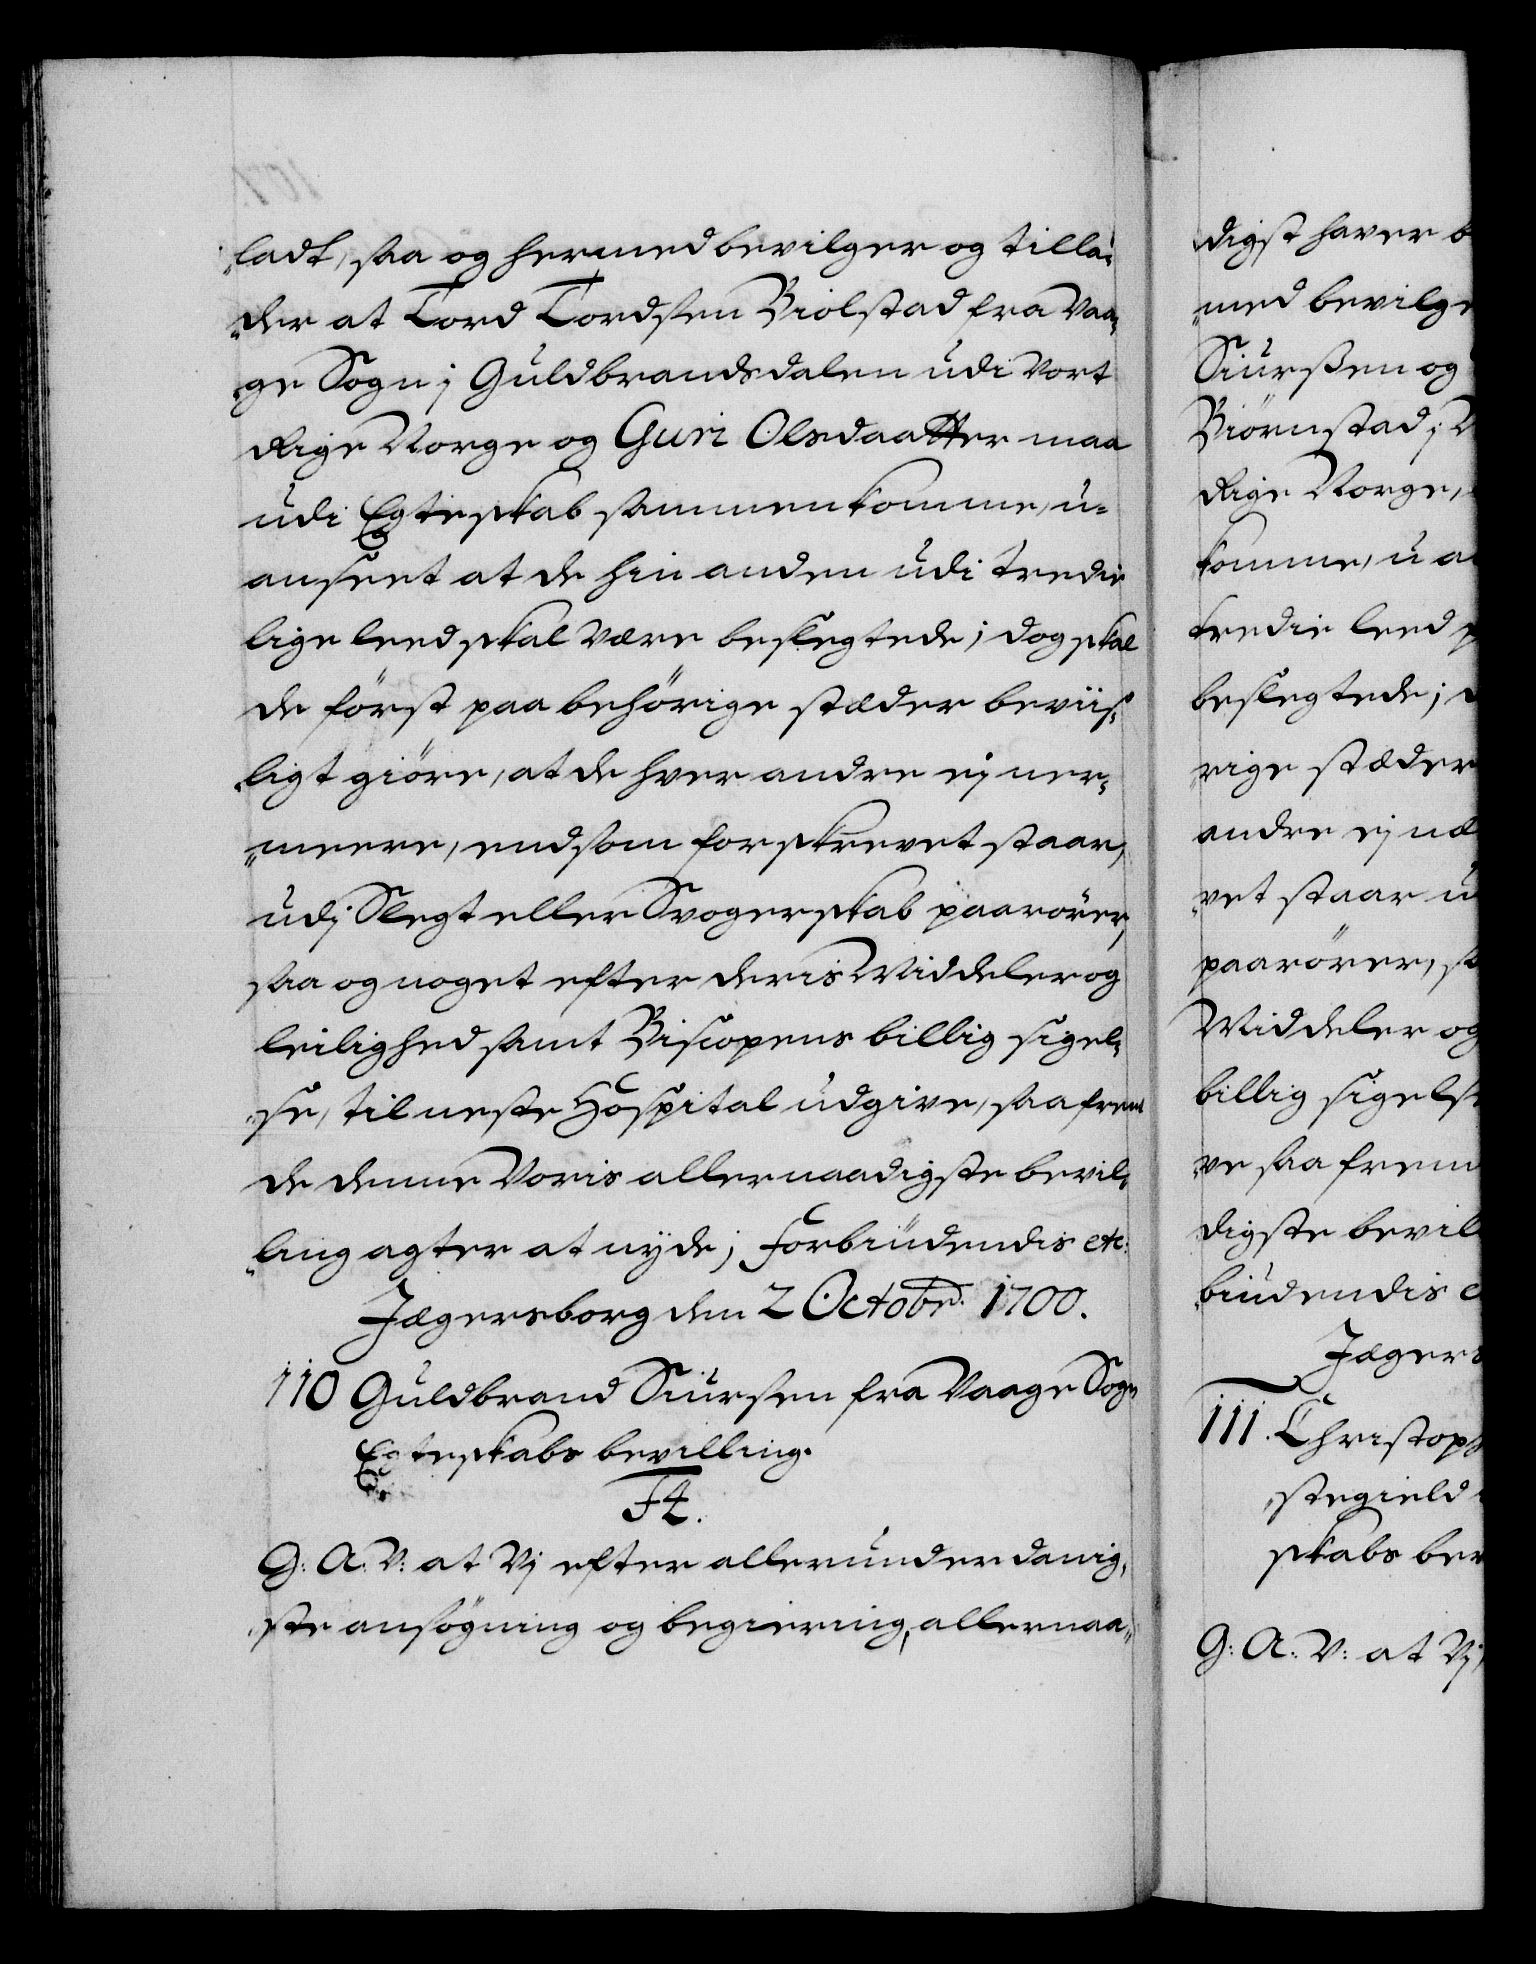 ladt, saa og hermed bevilger og tilla-
der at Tord Tordsen Biolstad fra Vaa-
ge Sogn j Guldbrandsdalen udi Vort
Rige Norge og Guri Olsdaatter maa
udi Egteskab sammenkomme, u-
anseet at de hin anden udi tredie
lige leed skal være beslegtede; dog skal
de først paa behörige stæder beviis-
ligt giöre, at de hver andre ej ner-
meere, end som forskrevet staar,
udj Slegt eller Svogerskab paarörer,
saa og noget efter deris Middeler og
leilighed samt Biscopens billig sigel-
se, til neste Hospital udgive, saafremt
de denne Voris allernaadigste bevil-
ling agter at nyde; Forbiudendis etc:
Jægersborg den 2 Octobr. 1700.
110 Guldbrand Siursen fra Vaage Sogn
Egteskabs bevilling.
F4.
G: A: V: at Vj efter allerunderdanig-
ste ansögning og begiering, allernaa-
digst haver b
med bevilge
Siurßen og
Biörnstad j V
Rige Norge,
komme, u a
tredie leed
beslegtede; d
rige stæder
andre ej næ
vet staar u
paarörer, sa
Middeler og
billig sigels
ve saa frem
digste bevil
biudendis e
Jægers
111. Christoph
stegield
skabs bev
G: A: V: at Vj